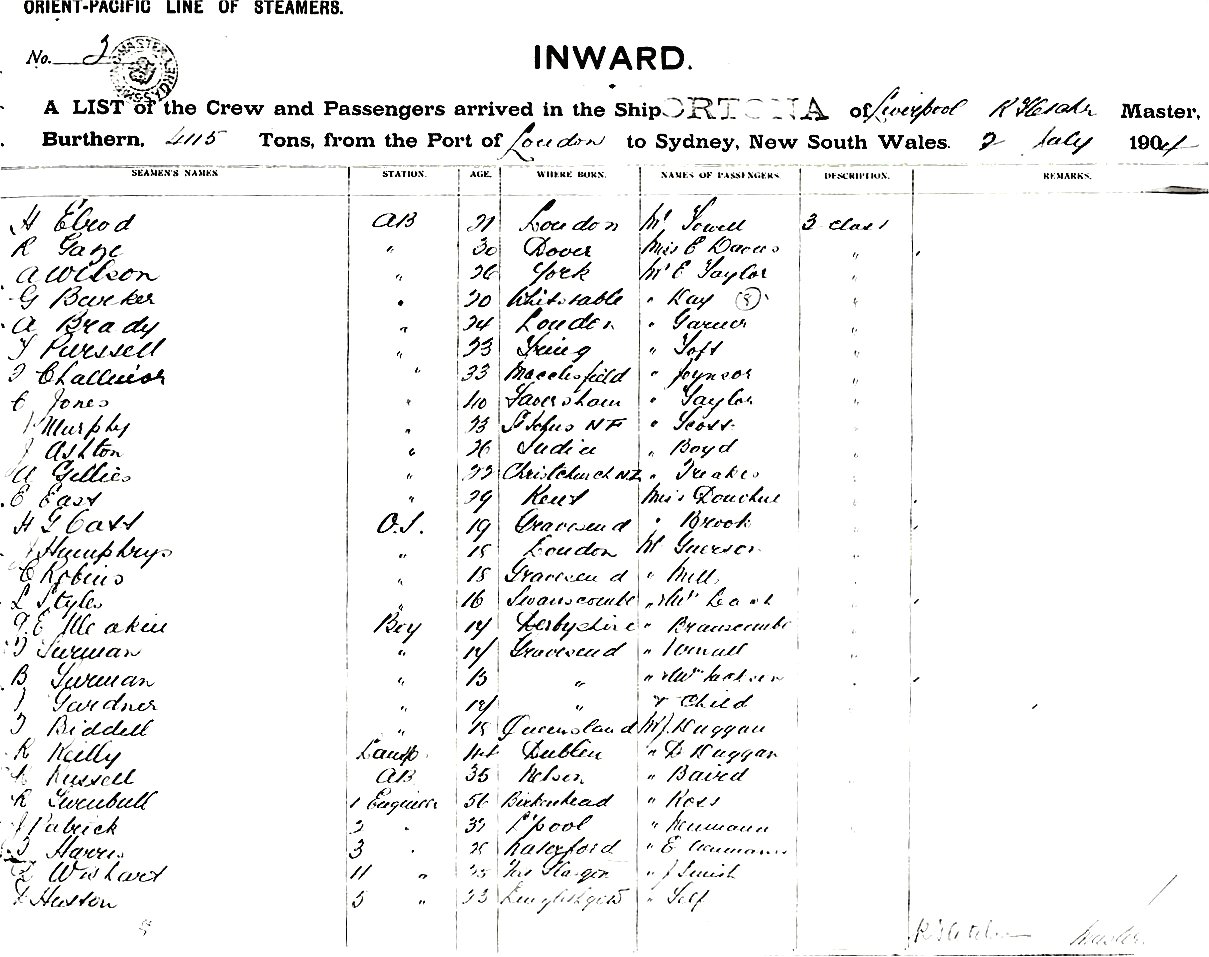 ORIENT-PACIFIC LINE OF STEAMERS.
No. 3
INWARD.
A LIST of the Crew and Passengers arrived in the Ship ORTONA of Liverpool Master,
Burthern, 4115 Tons, from the Port of London to Sydney, New South Wales. 2 July 1904
SEAMEN'S NAMES STATION. AGE. WHERE BORN. NAMES OF PASSENGERS. DESCRIPTION. REMARKS.
H Elrod AB 21 London Mr Towell 3 class
R Gaze " 30 Dover Miss E Davies "
A Wilson " 26 York Mr E Taylor "
G Barker " 20 Whitstable " Kay 8 "
A Brady " 24 London " Garner "
Purssell " 23 Tring " Toft "
Challinor " 33 Macclesfield " Joynson "
C Jones " 40 Faversham " Taylor "
J Murphy " 23 St Johns NF " Scott "
J Ashton " 26 India " Boyd "
Gillies " 22 Christchurch N.Z. " "
E East " 29 Kent Miss "
H G Cast O.S. 19 Gravesend " Brook "
J Humphrys " 18 London Mr "
C Robins " 18 Gravesend " Mills
L Styles " 16 Swanscombe "
E Meakin Boy 17 Derbyshire " Branscombe
Surman " 17 Gravesend "
B " "
J Gardner " 17 " & Child
Biddell " 18 Queensland Mr J Duggan
R Reilly Lamp 44 Dublin " D Duggan
Russell AB 35 Nelson " Baird
R Turnbull 1 Engineer 56 Birkenhead " Ross
J Patrick 2 " 32 L'pool " Neumann
Harris 3 " Waterford " E Neumann
Wishart 4 " " J Smith
Huston 5 " 23 " Self
Master